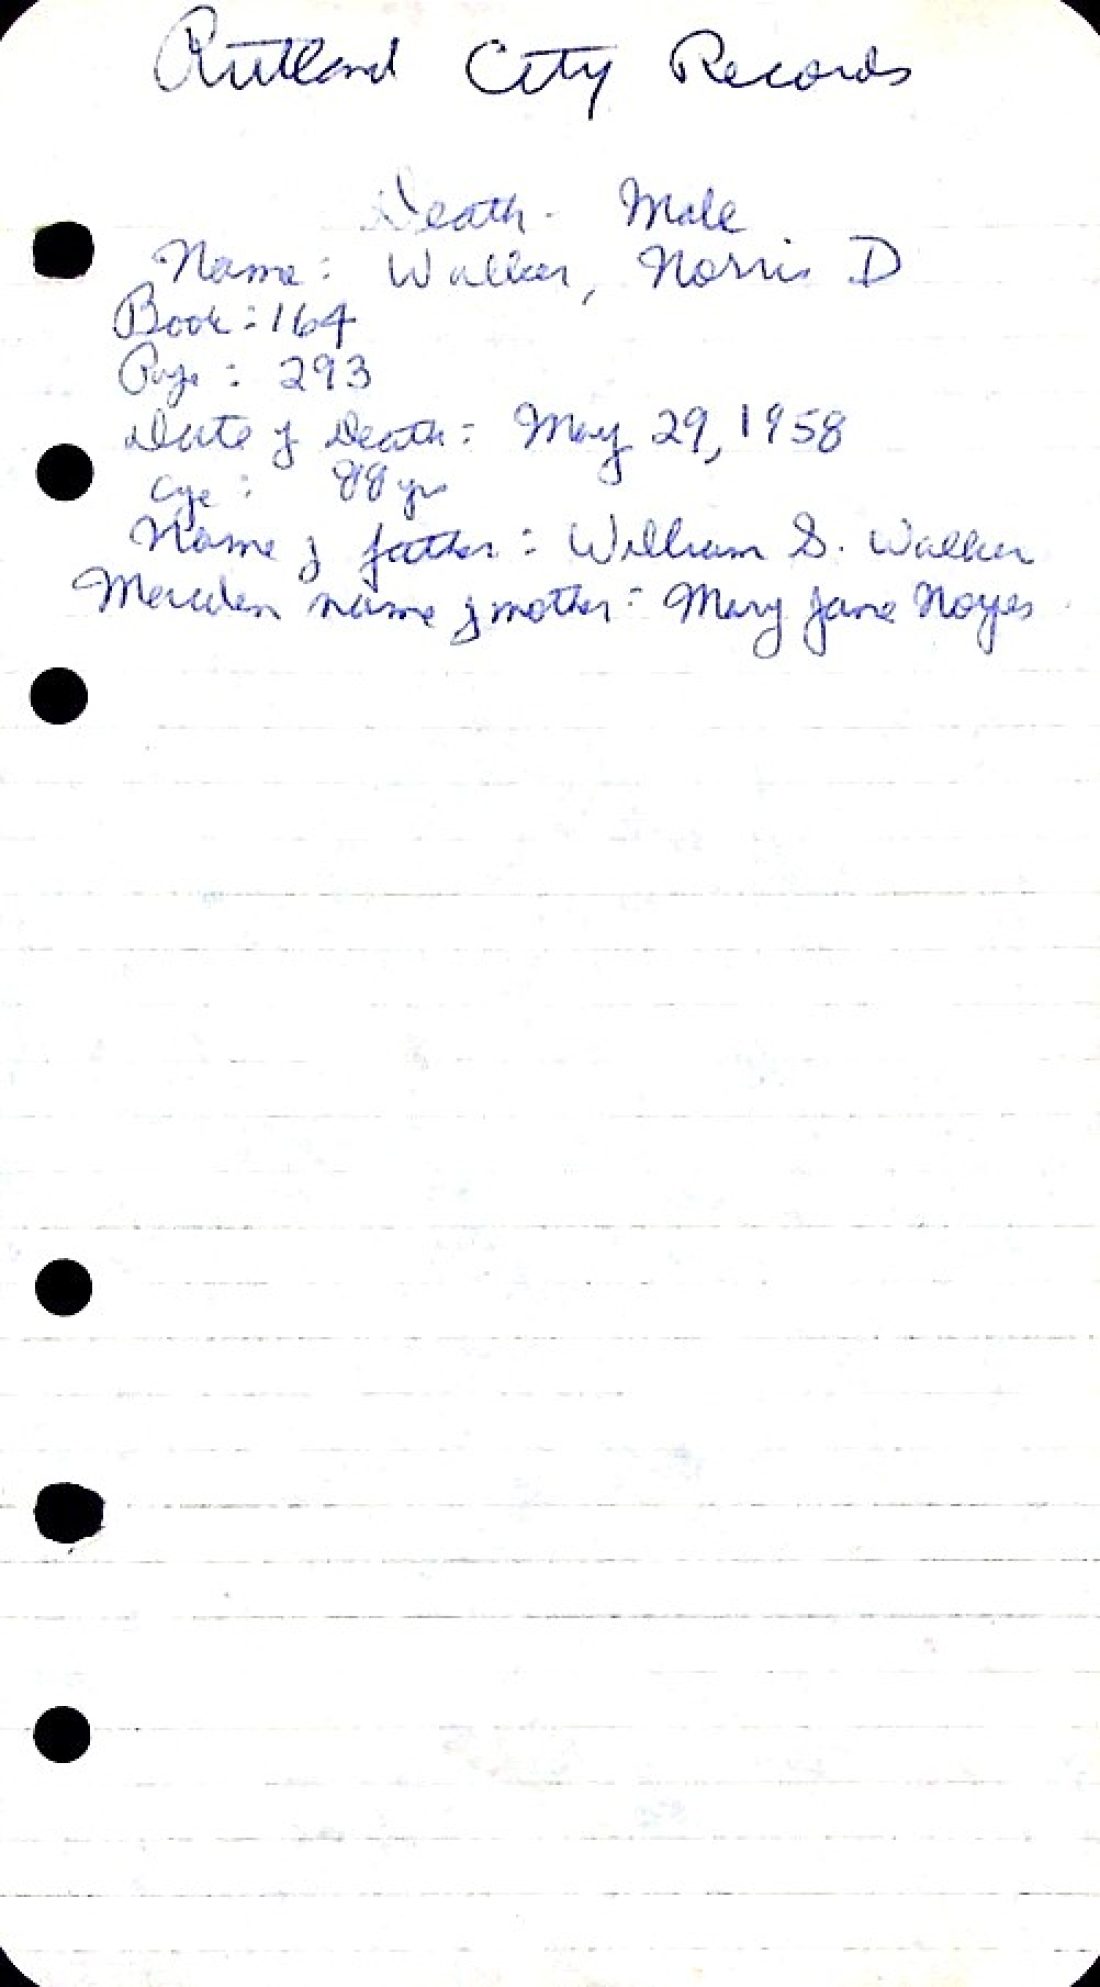 Rutland City Records
Death - Male
Name: Walker, Norris D
Book: 164
Page: 293
Date of Death: May 29, 1958
age: 88 yrs
Name of father: William S. Walker
Maiden name of mother: Mary Jane Noyes